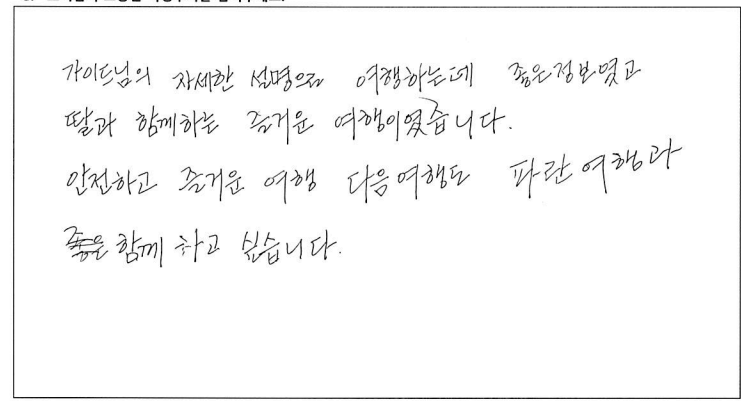 가이드님의 자세한 설명으로 여행하는데 좋은정보였고
딸과 함께하는 즐거운 여행이였습니다.
안전하고 즐거운 여행 다음여행도 파란여행과
함께 하고 싶습니다.